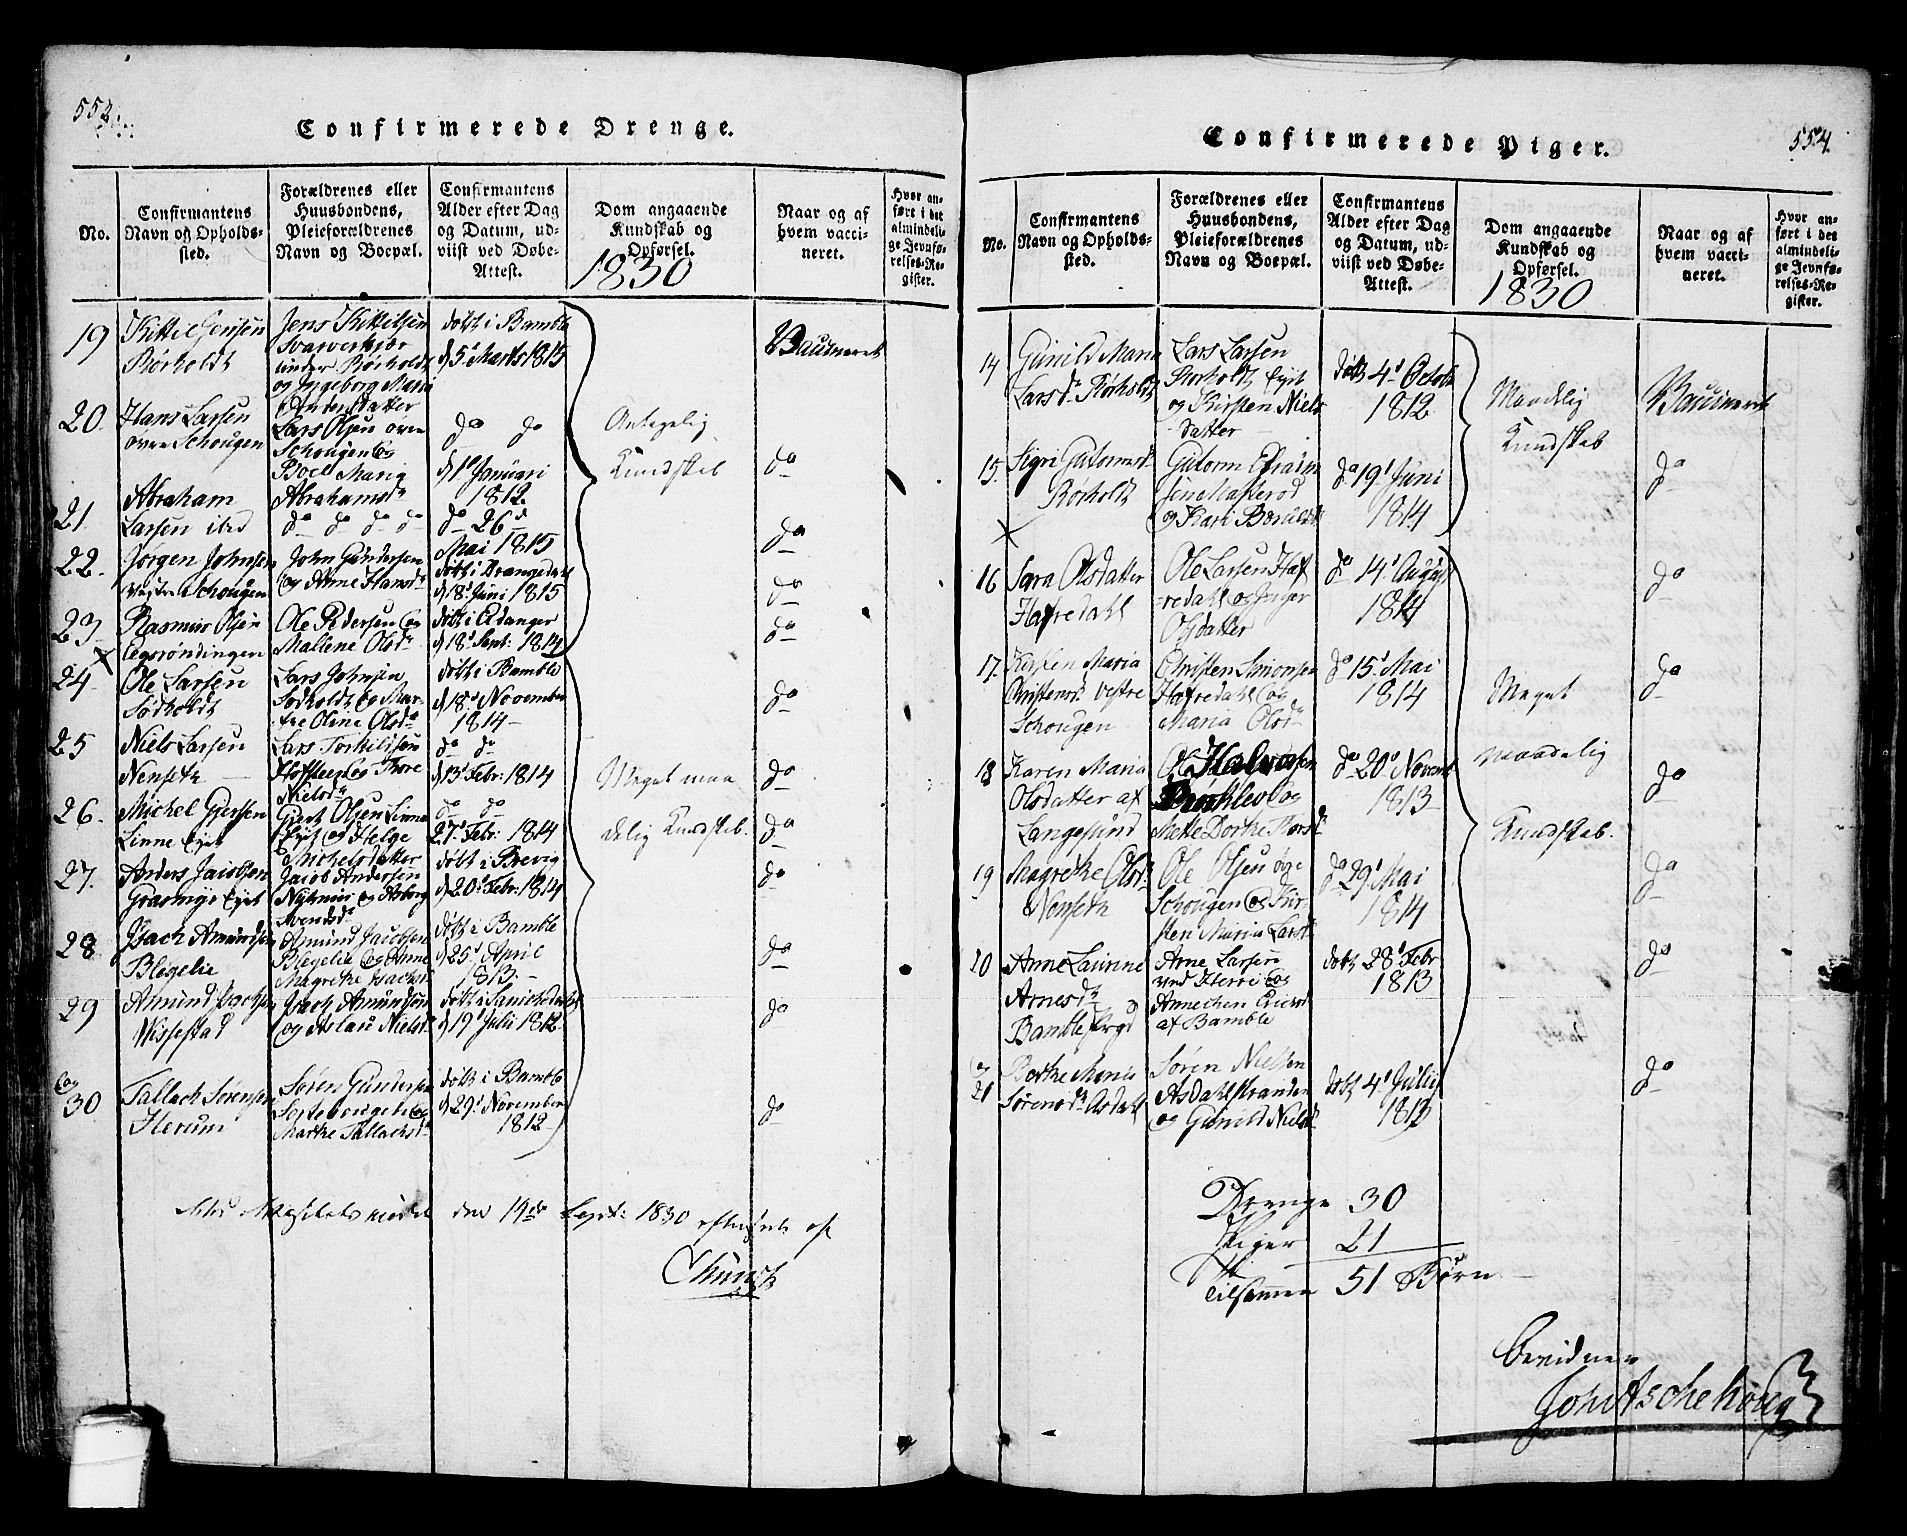 553.
Confirmerede Drenge.
No.
Confirmantens Navn og Opholds-sted.
Forældrenes eller Huusbondens, Pleieforældrenes Navn og Boepæl.
Confirmantens Alder efter Dag og Datum, ud-viist ved Døbe-Attest.
Dom angaaende Kundskab og Opførsel.
1830
Naar og af hvem vacci-neret.
Hvor an-ført i det almindeli-ge Jevnfø-relses-Re-gister.
19 Kittil Jensen Rørholdt
Jens Kittilsen Svarverkjær under Rørholdt og Ingeborg Maria Andersdatter
døbt i Bamble d 5t Marts 1815
Vaccineret
20. Hans Larsen øvre Schougen
Lars Olsen øvre Schougen og Boel Maria Abrahamsdr
do do d 1t Januari 1812.
Antagelig Kundskab
do
21. Abraham Larsen ibid
do do do do
do 26d Mai 1815
do
22. Jørgen Johnsen Vestre Schougen
John Gundersen og Anne Hansdr
døbt i Drangedahl d 18t Juni 1815
do
23. Rasmus Olsen Eegsrøndingen
Ole Pedersen og Mallene Olsdr
døbt i Eidanger d 18t Sept: 1814
do
24. Ole Larsen Sødholdt
Lars Johnsen Sødholdt og Marthe Olene Olsdr
døbt i Bamble d 18t November 1814
do
25 Niels Larsen Nenseth
Lars Torkildsen Hafsteen og Thore Nielsdr
do do d 13t Febr: 1814
Meget maadelig Kundskab.
do
26. Michel Gjertsen Linne Eyet
Gjert Olsen Linne Eyet og Helge Michelsdatter
do do 27t Febr: 1814
do
27. Anders Jacobsen Grasmyr Eyet
Jacob Andersen Nyhuus og Asborg Svendsdr
døbt i Brevig d 20t Febr: 1814
do
28. Isach Amundsen Blegelie
Amund Jacobsen Blegelie og Anne Magrethe Isachsdr
døbt i Bamble d 25t April 1813.
do
29 Amund Isachsen Wissestad
Isach Amundsen og Aslau Nielsdr
døbt i Sanichedahl d 19t Julii 1812
do
og
30 Tallach Sørensen Herum
Søren Gundersen og Marthe Tallachsdr
døbt i Bamble d 29t November 1812
do
den 19de Sept: 1830 af
Chunck
554.
Confirmerede Piger.
No.
Confirmantens Navn og Opholds-sted.
Forældrenes eller Huusbondens, Pleieforældrenes Navn og Boepæl.
Confirmantens Alder efter Dag og Datum, ud-viist ved Døbe-Attest.
Dom angaaende Kundskab og Opførsel.
1830
Naar og af hvem vacci-neret.
Hvor an-ført i det almindeli-ge Jevnfø-relses-Re-gister.
14 Gunild Maria Larsdr Rørholdt
Lars Larsen Rørholdt Eyet og Kirsten Nielsdatter
døbt 4t Octob 1812
Maadelig Kundskab
Vaccineret
15. Sigri Gutormsdr Rørholdt
Gutorm Efraimsen Masterød og Kari Bærulsdr
do 19t Juni 1814
do
16 Sara Olsdatter Hafredahl
Ole Larsen Hafredahl og Inger Olsdatter
do 14t August 1814
do
17. Kirsten Maria Christensdr Vestre Schougen
Christen Simonsen Hafredahl og Maria Olsdr
do 15t Mai 1814
Meget maadelig Kundskab.
do
18 Karen Maria Olsdatter af Langesund
Ole Halvorsen Trosklev og Mette Dorthe Thorsdr
do 20t Novemb 1813
do
19 Magrethe Olsdr Nenseth
Ole Olsen øvre Schougen og Kirsten Maria Larsdr
do 29t Mai 1814
do
20 Anne Laurine Arnesdr Bamble Prgd
Arne Larsen ved Herre og Annechen Ericsdr af Bamble
døbt 28t Febr 1813
do
og
21 Berthe Maria Sørensdr Asdahl
Søren Nielsen Asdahlstranden og Gunild Nielsdr
døbt 4t Julii 1813
do
Drenge 30
Piger 21
Tilsammen 51 Børn
Bevidner
Joh Aschehoug